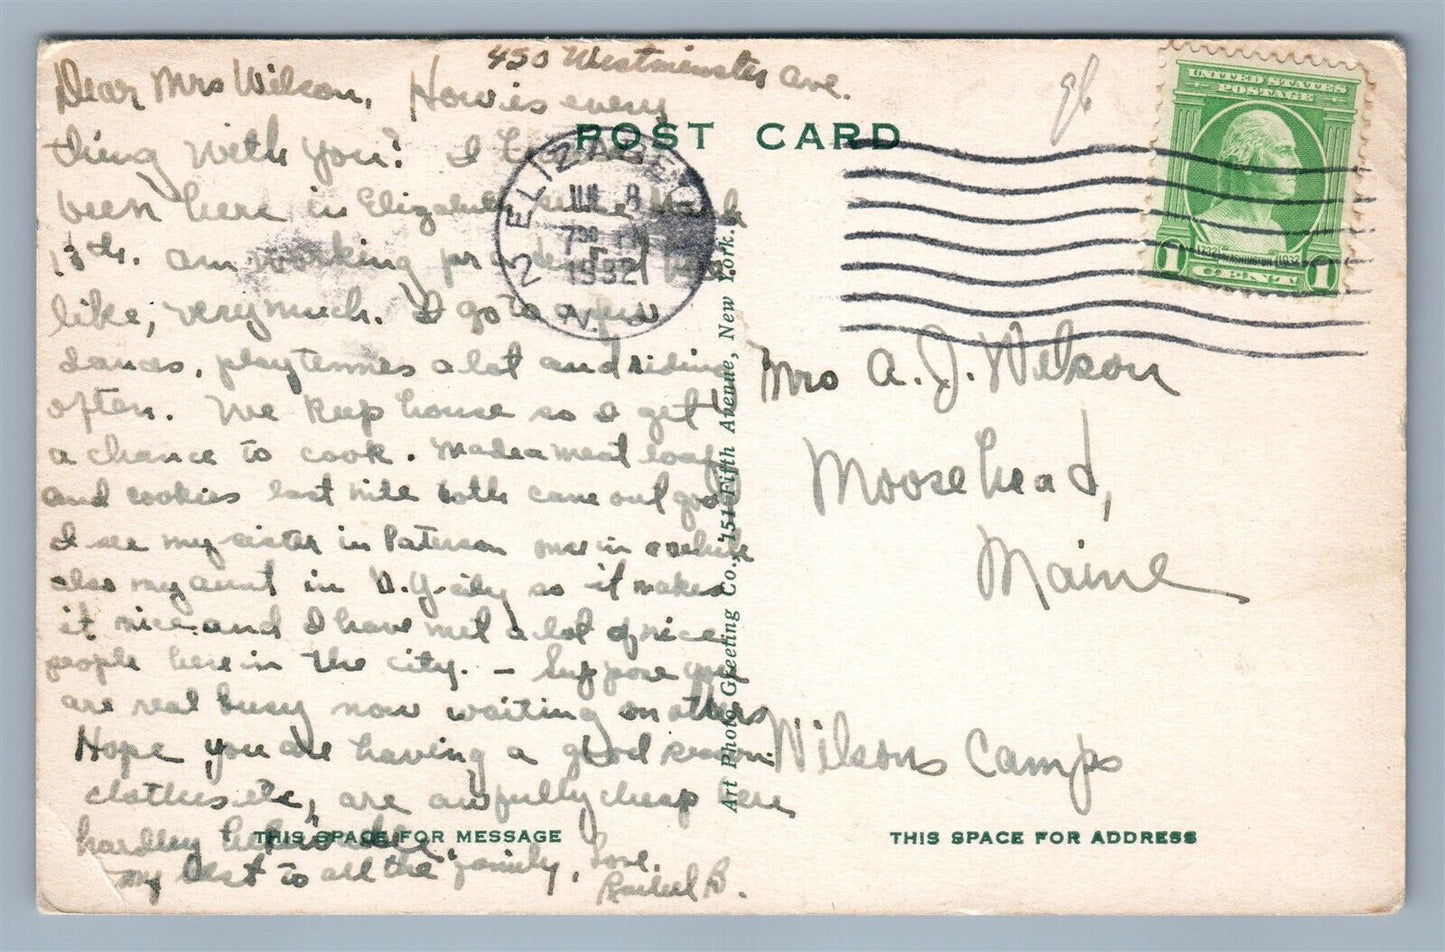 450 Westminster Ave.
Dear Mrs Wilson, How is every
thing with you? I
been here in Elizabeth since March
13th. am working
like, very much. I go to a few
dances, play tennis a lot and riding
often. We keep house so I get
a chance to cook. Made a meat loaf
and cookies last nite both came out good
I see my sister in Paterson once in a while
also my aunt in N.Y. city so it makes
it nice and I have met a lot of nice
people here in the city. – Suppose you
are real busy now waiting on others
Hope you are having a good season.
clothes etc, are awfully cheap here
hardly
my best to all the family, Love,
Rachel B.
POST CARD
ELIZABETH
JUL 8
7 30 PM
1932
N. J.
UNITED STATES
POSTAGE
1732 WASHINGTON 1932
1 CENT 1
Mrs A. J. Wilson
Moosehead,
Maine
Wilsons Camps
Art Photo Greeting Co., 151 Fifth Avenue, New York.
THIS SPACE FOR MESSAGE
THIS SPACE FOR ADDRESS